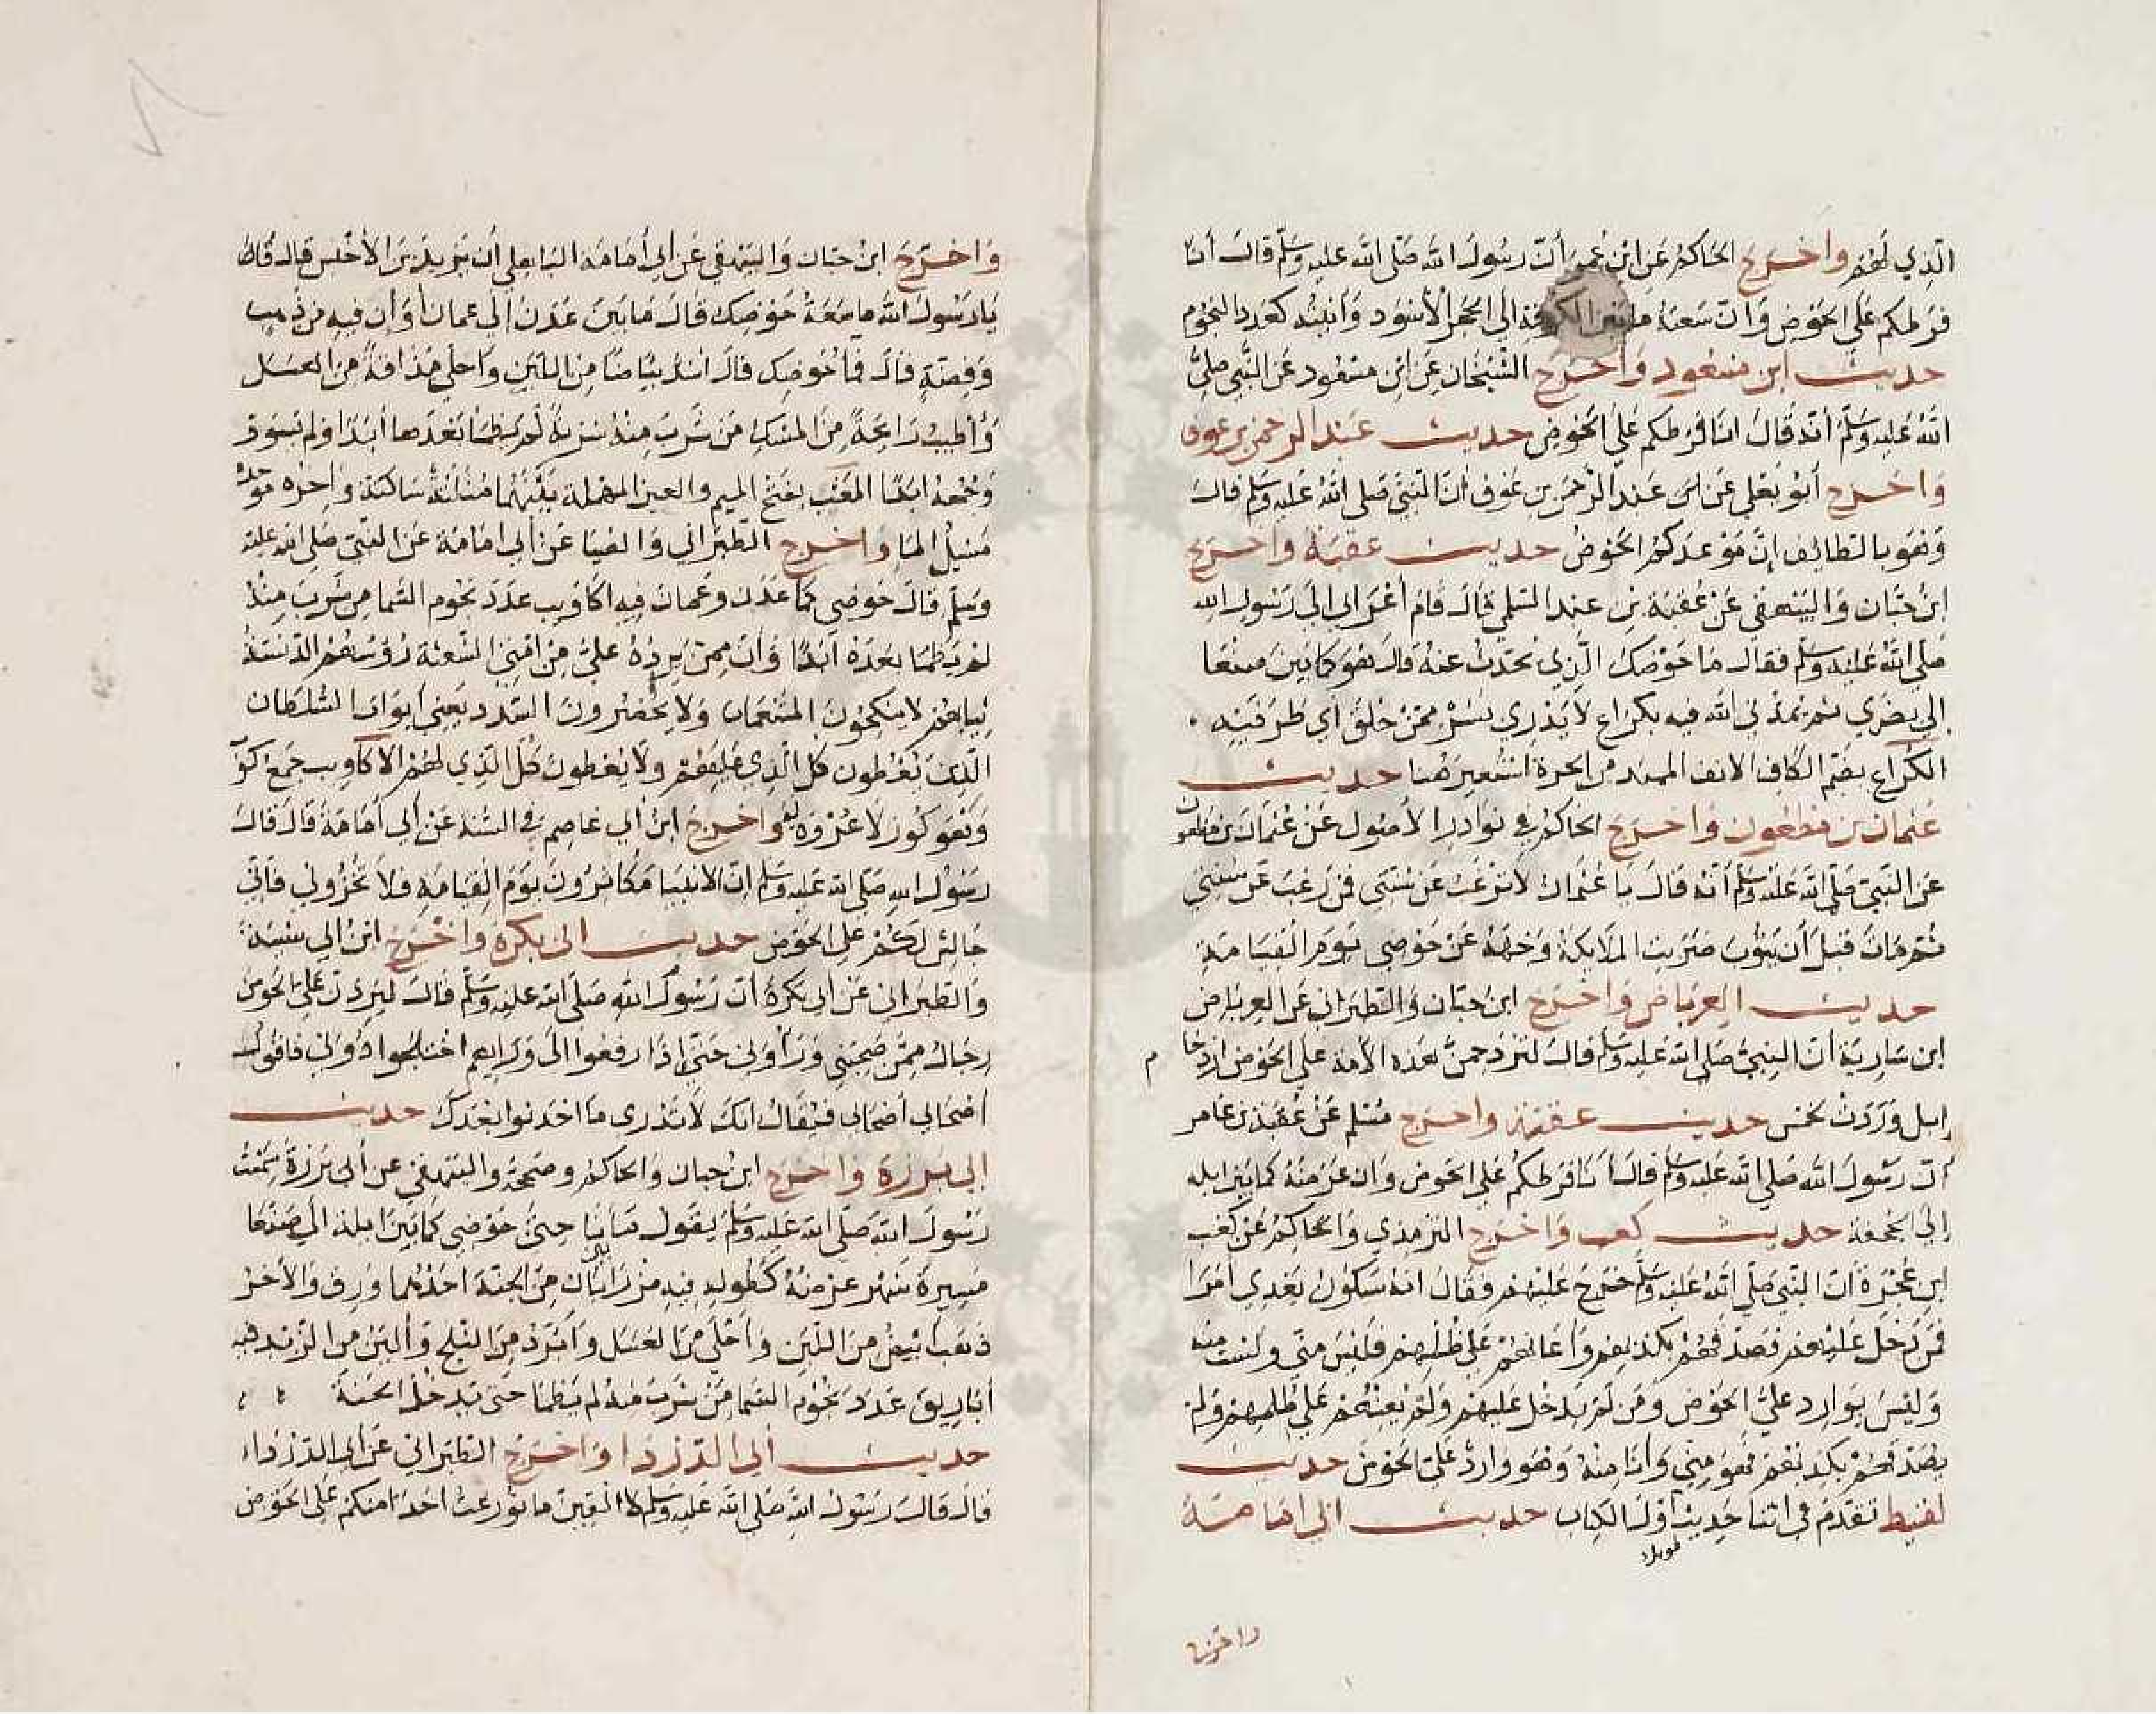 الذي لهم واخرج الحاكم عن ابن عمر أن رسول الله صلى الله عليه وسلم قال أنا
فرطكم على الحوض وان سعته ما بين الكوفة الى الحجر الأسود وآنيته كعدد النجوم
حديث ابن مسعود وأخرج الشيخان عن ابن مسعود عن النبي صلى
الله عليه وسلم أنه قال انا فرطكم على الحوض حديث عبد الرحمن بن عوف
واخرج أبو يعلى عن عبد الرحمن بن عوف أن النبي صلى الله عليه وسلم قال
وهو بالطائف إن موعدكم الحوض حديث عقبة واخرج
ابن حبان والبيهقي عن عقبة بن عبد السلمي قال قام أعرابي إلى رسول الله
صلى الله عليه وسلم فقال ما حوضك الذي تحدث عنه قال هو كما بين صنعا
إلى بصرى ثم يمدني الله فيه بكراع لا يدري بشر ممن خلق أي طرفيه
الكراع بضم الكاف الانف الممتد من الحرة استعير هنا حديث
عثمان بن مظعون واخرج الحاكم في نوادر الأصول عن عثمان بن مظعون
عن النبي صلى الله عليه وسلم أنه قال يا عثمان لا ترغب عن سنتي فمن رغب عن سنتي
ثم مات قبل أن يتوب ضربت الملايكة وجهه عن حوضي يوم القيامة
حديث العرباض واخرج ابن حبان والطبراني عن العرباض
ابن سارية أن النبي صلى الله عليه وسلم قال لتزدحمن هذه الأمة على الحوض ازدحام
إبل وردت لخمس حديث عقبة واخرج مسلم عن عقبة بن عامر
أن رسول الله صلى الله عليه وسلم قال أنا فرطكم على الحوض وان عرضه كما بين ايله
إلى الجحفة حديث كعب واخرج الترمذي والحاكم عن كعب
ابن عجرة أن النبي صلى الله عليه وسلم خرج عليهم وقال انه سيكون بعدي أمرا
فمن دخل عليهم فصدقهم بكذبهم وأعانهم على ظلمهم فليس مني ولست منه
وليس بوارد على الحوض ومن لم يدخل عليهم ولم يعنهم على ظلمهم ولم
يصدقهم بكذبهم فهو مني وأنا منه وهو وارد على الحوض حديث
لقيط تقدم في اثنا حديث أول الكتاب حديث ابي امامة
طويل
واخرج
واخرج ابن حبان والبيهقي عن أبي أمامة الباهلي أن يزيد بن الأخنس قال قال
يا رسول الله ما سعة حوضك قال ما بين عدن إلى عمان وأن فيه من ذهب
وفضة قال فما حوضك قال اشد بياضا من اللبن واحلى مذاقة من العسل
وأطيب رايحة من المسك من شرب منه شربة لم يظما بعدها أبدا ولم يسود
وجهه ابدا المثعب بفتح الميم والعين المهملة بينهما مثلثة ساكنة واخره موحده
مسيل الما واخرج الطبراني والضيا عن أبي امامة عن النبي صلى الله عليه
وسلم قال حوضي كما عدن وعمان فيه اكاويب عدد نجوم السما من شرب منه
لم يظما بعده أبدا وأن ممن يرده علي من امتي الشعثة رؤسهم الدنسة
ثيابهم لا ينكحون المتنعمات ولا يحضرون السدد يعني أبواب السلطان
الذين يعطون كل الذي عليهم ولا يعطون كل الذي لهم الاكاويب جمع كوب
وهو كوز لا عروة له واخرج ابن أبي عاصم في السنة عن أبي أمامة قال قال
رسول الله صلى الله عليه وسلم ان الانبيا مكاثرون يوم القيامة فلا تخزوني فاني
جالس لكم على الحوض حديث ابي بكرة واخرج ابن ابي شيبة
والطبراني عن ابي بكرة أن رسول الله صلى الله عليه وسلم قال ليردن علي الحوض
رجال ممن صحبني ورآوني حتى إذا رفعوا الي ورايتهم اختلجوا دوني فاقول
أصحابي أصحابي فيقال انك لا تدري ما احدثوا بعدك حديث
ابي برزة واخرج ابن حبان والحاكم وصححه والبيهقي عن أبي برزة سمعت
رسول الله صلى الله عليه وسلم يقول ما بين جنبي حوضي كما بين ايلة الى صنعا
مسيرة شهر عرضه كطوله فيه مزرابان من الجنة احدهما ورق والأخر
ذهب أبيض من اللبن وأحلى من العسل وأبرد من الثلج وألين من الزبد فيه
أباريق عدد نجوم السما من شرب منه لم يظما حتى يدخل الجنة
حديث أبي الدرداء واخرج الطبراني عن أبي الدرداء
قال قال رسول الله صلى الله عليه وسلم لا الفين ما نوزعت احدا منكم على الحوض